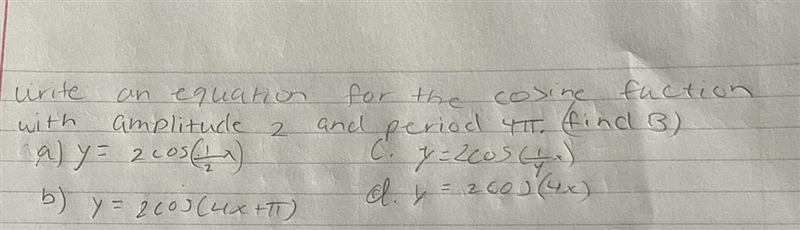 write an equation for the cosine fuction
with amplitude 2 and period 4π. (find B)
a) y = 2cos(1/2x) C. y=2cos(1/4x)
b) y = 2cos(4x+π) d. y = 2cos(4x)